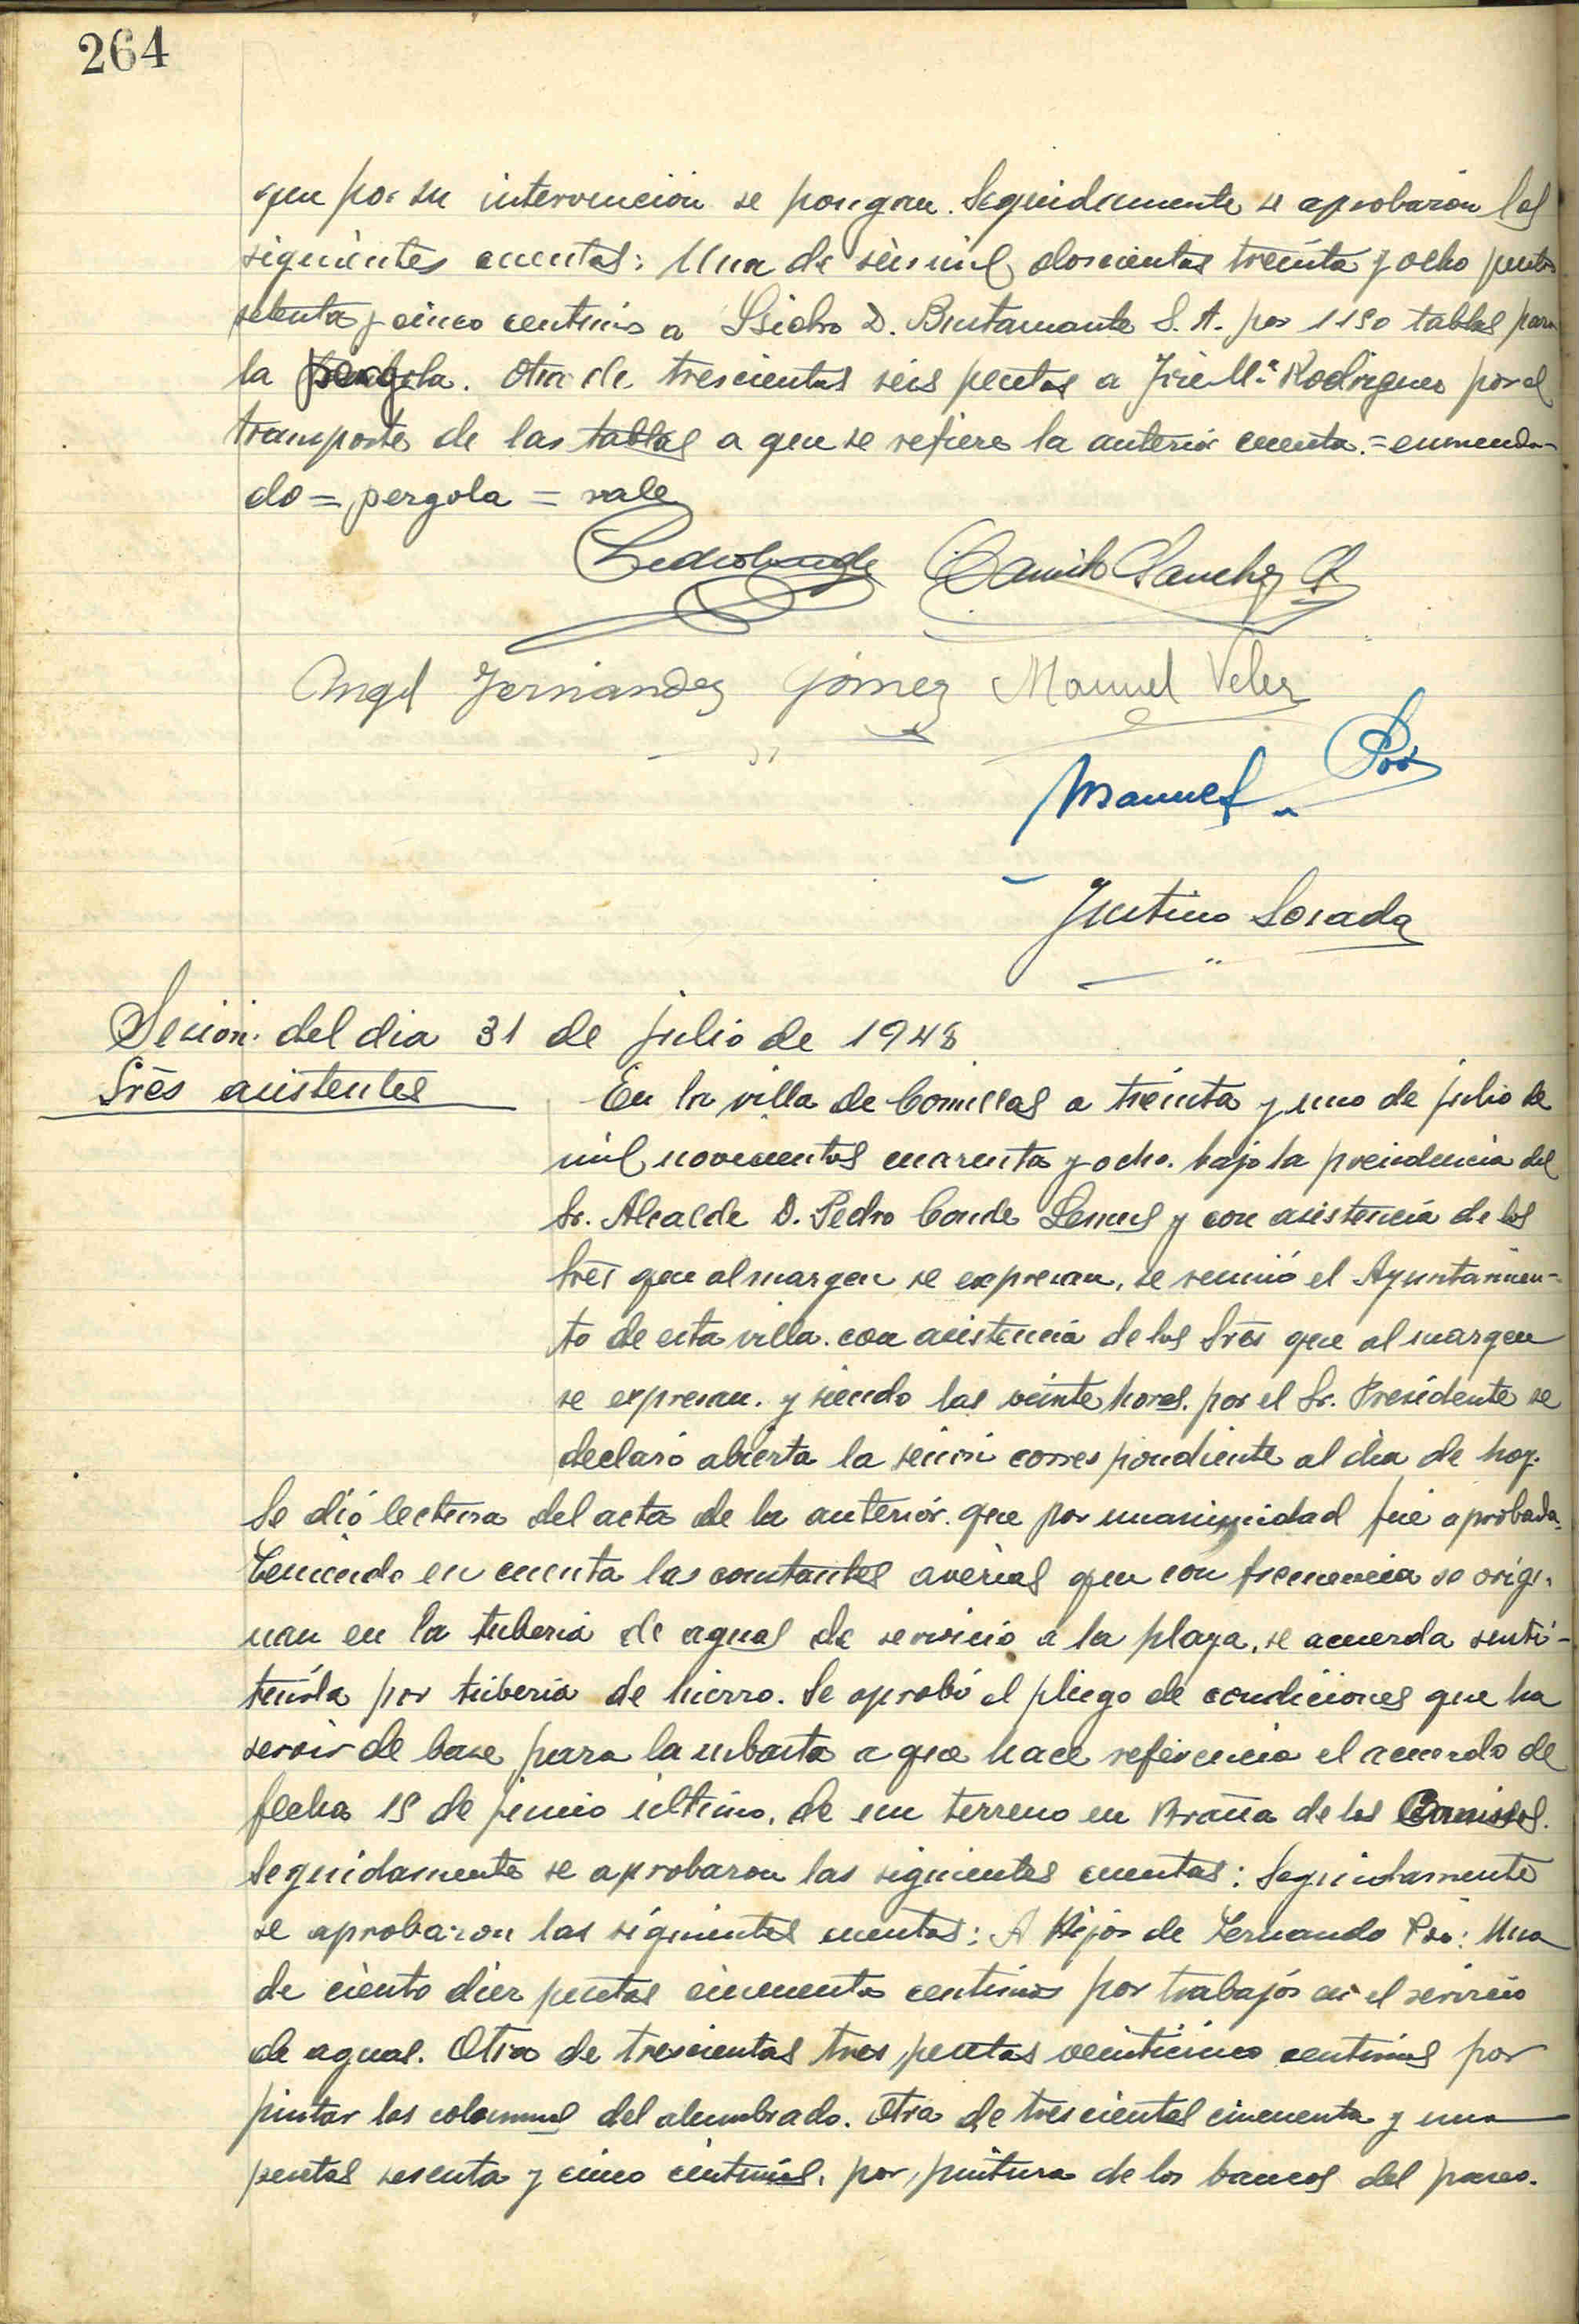 264
que por su intervención se pongan. Seguidamente se aprobaron las
siguientes cuentas: Una de seis mil doscientas treinta y ocho pesetas
setenta y cinco centimos a Isidro D. Bustamante S. A. por 1190 tablas para
la pergola. Otra de trescientas seis pesetas a José Mª Rodriguez por el
transporte de las tablas a que se refiere la anterior cuenta. = enmenda-
do = pergola = vale
Pedro Conde Camilo Sanchez
Angel Fernandez Gómez Manuel Velez
Manuel Poo
Justino Losada
Sesion del dia 31 de julio de 1948
Sres asistentes
En la villa de Comillas a treinta y uno de julio de
mil novecientos cuarenta y ocho. bajo la presidencia del
Sr. Alcalde D. Pedro Conde Lemus y con asistencia de los
Sres que al margen se expresan, se reunió el Ayuntamien-
to de esta villa. con asistencia de los Sres que al margen
se expresan. y siendo las veinte horas. por el Sr. Presidente se
declaró abierta la sesion correspondiente al dia de hoy.
Se dió lectura del acta de la anterior. que por unanimidad fué aprobada.
Teniendo en cuenta las constantes averias que con frecuencia se origi-
nan en la tuberia de aguas de servicio a la plaza, se acuerda susti-
tuirla por tuberia de hierro. Se aprobó el pliego de condiciones que ha
servir de base para la subasta a que hace referencia el acuerdo de
fecha 19 de junio ultimo, de un terreno en Braña de los
Seguidamente se aprobaron las siguientes cuentas: Seguidamente
se aprobaron las siguientes cuentas: A Hijos de Fernando Poo: Una
de ciento diez pesetas cincuenta centimos por trabajos en el servicio
de aguas. Otra de trescientas tres pesetas veinticinco centimos por
pintar las columnas del alumbrado. Otra de trescientas cincuenta y una
pesetas sesenta y cinco centimos. por pintura de los bancos del paseo.